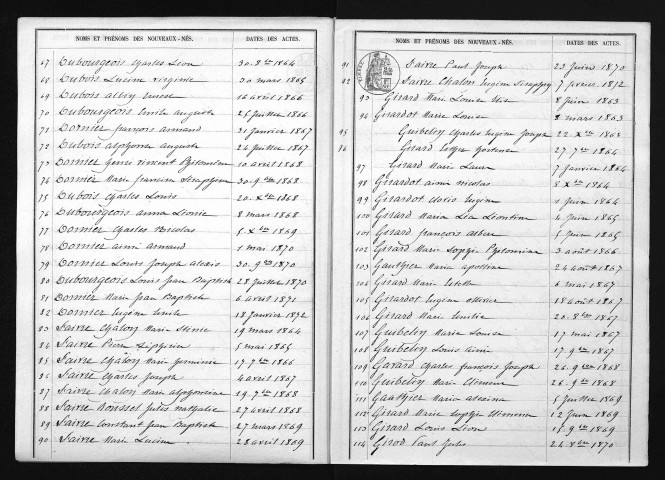 NOMS ET PRÉNOMS DES NOUVEAUX-NÉS. DATES DES ACTES.
67 Dubourgeois Charles Léon 30 8bre 1864
68 Dubois Lucien Virginie 20 mars 1865
69 Dubois Albin 16 avril 1866
70 Dubourgeois Emile Auguste 25 juillet 1866
71 Dornier françois armand 31 janvier 1867
72 Dubois alphonse auguste 24 juillet 1867
73 Dornier Vincent Philomène 10 avril 1868
74 Dornier Marie francine Séraphine 30 9bre 1868
75 Dubois Charles Louis 20 Xbre 1868
76 Dubourgeois anna Léonie 8 mars 1868
77 Dornier Charles Nicolas 5 Xbre 1869
78 Dornier aimé armand 1 mai 1870
79 Dornier Louis Joseph alexis 30 9bre 1870
80 Dubourgeois Louis Jean Baptiste 28 juillet 1870
81 Dornier Marie Jean Baptiste 6 avril 1871
82 Dornier Eugène Emile 18 janvier 1872
83 Faivre Chalon Marie 19 mars 1864
84 Faivre Pierre 5 mai 1865
85 Faivre Chalon Marie 17 7bre 1866
86 Faivre Charles Joseph 4 avril 1867
87 Faivre Chalon Marie alphonsine 29 7bre 1868
88 Faivre Roussel Jules 27 avril 1868
89 Faivre Constant Jean Baptiste 27 mars 1869
90 Faivre Marie Lucien 28 avril 1869
NOMS ET PRÉNOMS DES NOUVEAUX-NÉS. DATES DES ACTES.
91 Faivre Paul Joseph 23 juin 1870
92 Faivre Chalon Eugène 7 février 1872
93 Girard Marie Louise 8 juin 1863
94 Girardot Marie Louise 8 mars 1863
95 Guibelin Charles Eugène Joseph 22 Xbre 1863
96 Girard 27 7bre 1864
97 Girard Marie Laure 7 janvier 1864
98 Girardot aimé nicolas 8 Xbre 1864
99 Girardot Eugène 1 juin 1864
100 Girard Maria Léa Léontine 4 juin 1865
101 Girard françois 5 juin 1865
102 Girard Marie Sophie Philomène 3 août 1866
103 Gauthier Maria 24 août 1867
104 Girard Marie Estelle 6 mai 1867
105 Girardot Eugène ollivier 18 août 1867
106 Girard Marie Emélie 20 8bre 1867
107 Guibelin Marie Louise 17 mai 1867
108 Guibelin Louis aimé 17 9bre 1867
109 Gavard Charles françois Joseph 26 9bre 1868
110 Guibelin Marie 26 9bre 1868
111 Gauthier Marie 5 juillet 1869
112 Girard Marie Sophie 12 juin 1869
113 Girard Louis Léon 15 9bre 1869
114 Girod Paul Jules 24 8bre 1870